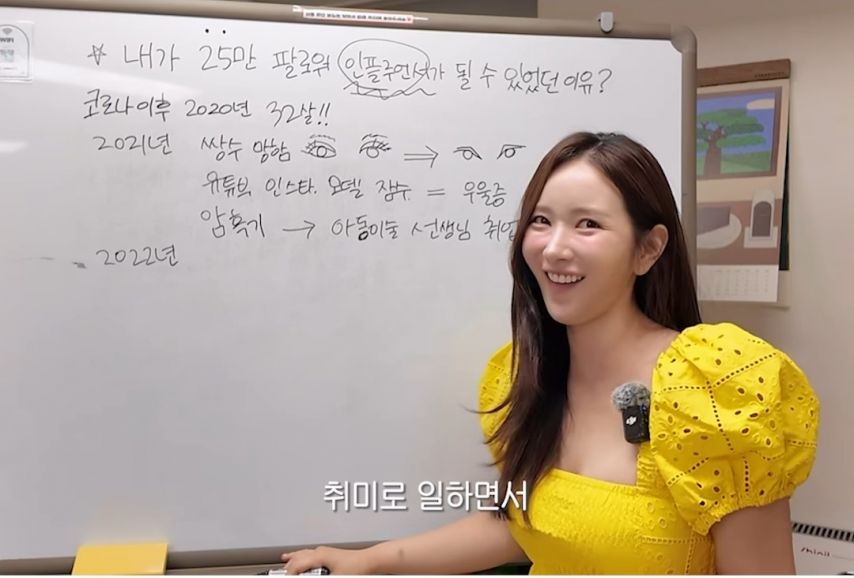 ☆ 내가 25만 팔로워 인플루언서가 될 수 있었던 이유?
코로나 이후 2020년 32살!!
2021년 쌍수 망함 ⇒
유튜브, 인스타, 모델 잠수 = 우울증
암흑기 → 아동미술 선생님 취업
2022년
취미로 일하면서
WiFi
dji